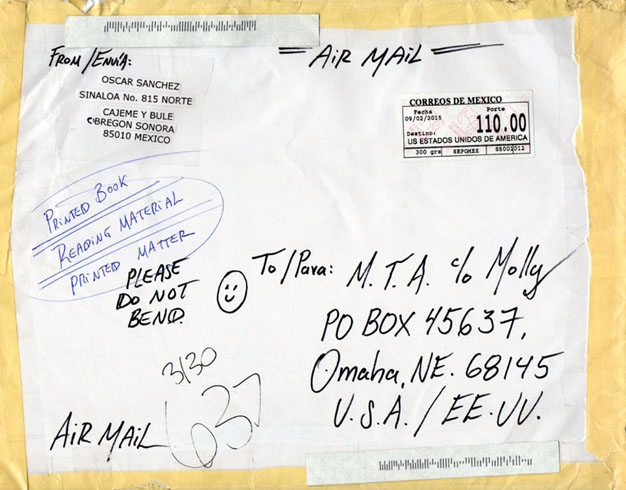 AIR MAIL
FROM/ENVÍA:
OSCAR SANCHEZ
SINALOA No. 815 NORTE
CAJEME Y BULE
OBREGON SONORA
85010 MEXICO
CORREOS DE MEXICO
Fecha Porte
09/02/2015 110.00
Destino:
US ESTADOS UNIDOS DE AMERICA
300 grs SEPOMEX 85001012
PRINTED BOOK
READING MATERIAL
PRINTED MATTER
PLEASE
DO NOT
BEND.
To/Para: M.T.A. c/o Molly
PO BOX 45637,
Omaha, NE. 68145
U.S.A. / EE.UU.
3/30
637
AIR MAIL